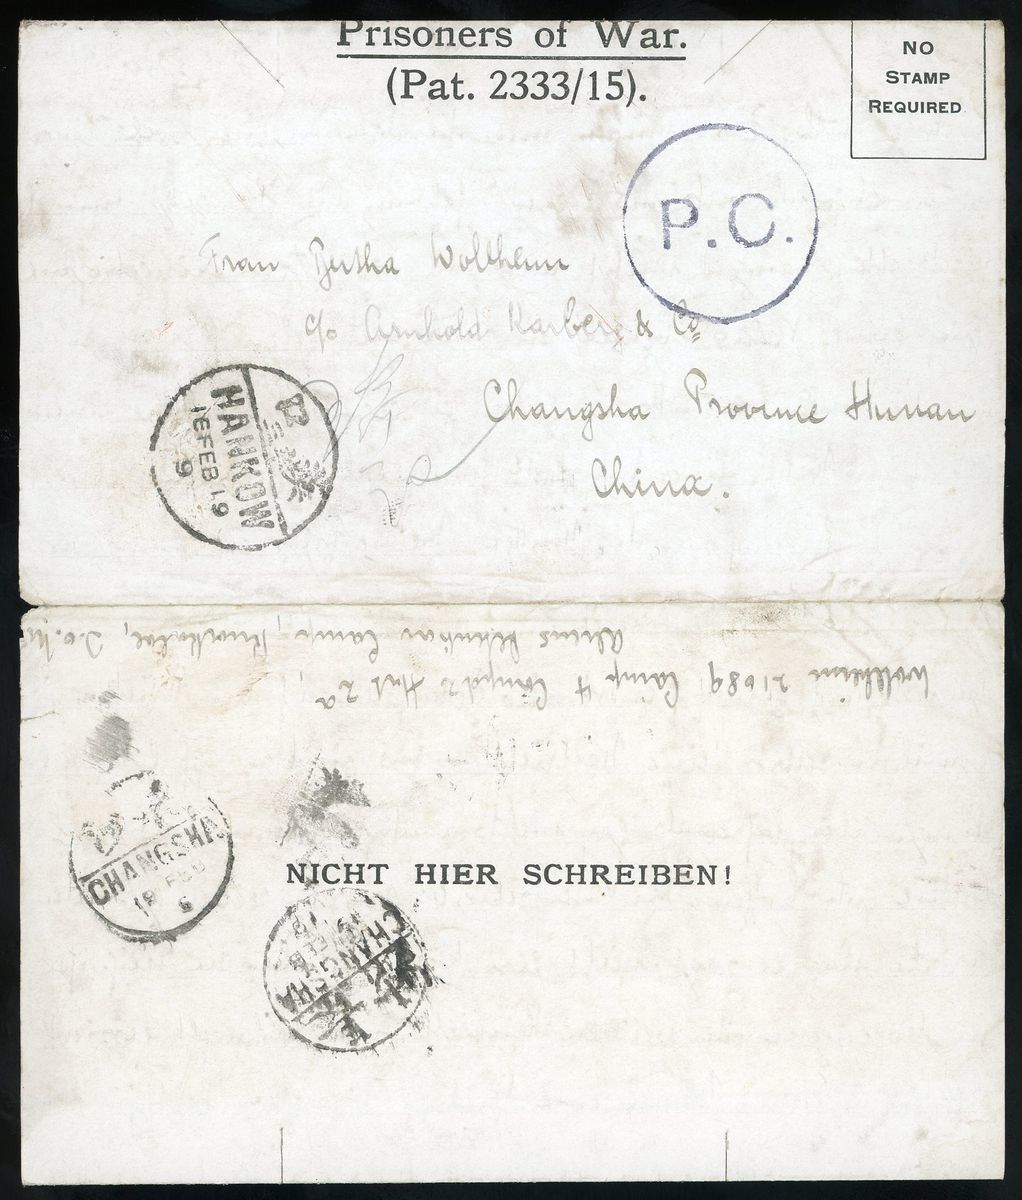 Prisoners of War.
(Pat. 2333/15).
NO
STAMP
REQUIRED
P.C.
Frau Bertha Wollheim
c/o Arnhold Karberg & Co
Changsha Province Hunan
China.
HANKOW
16 FEB 19
9
Wollheim 21089, Camp 4 Compd 2 Hut 2a,
Aliens Detention Camp, Knockaloe, I.o.M.
CHANGSHA
NICHT HIER SCHREIBEN!
CHANGSHA